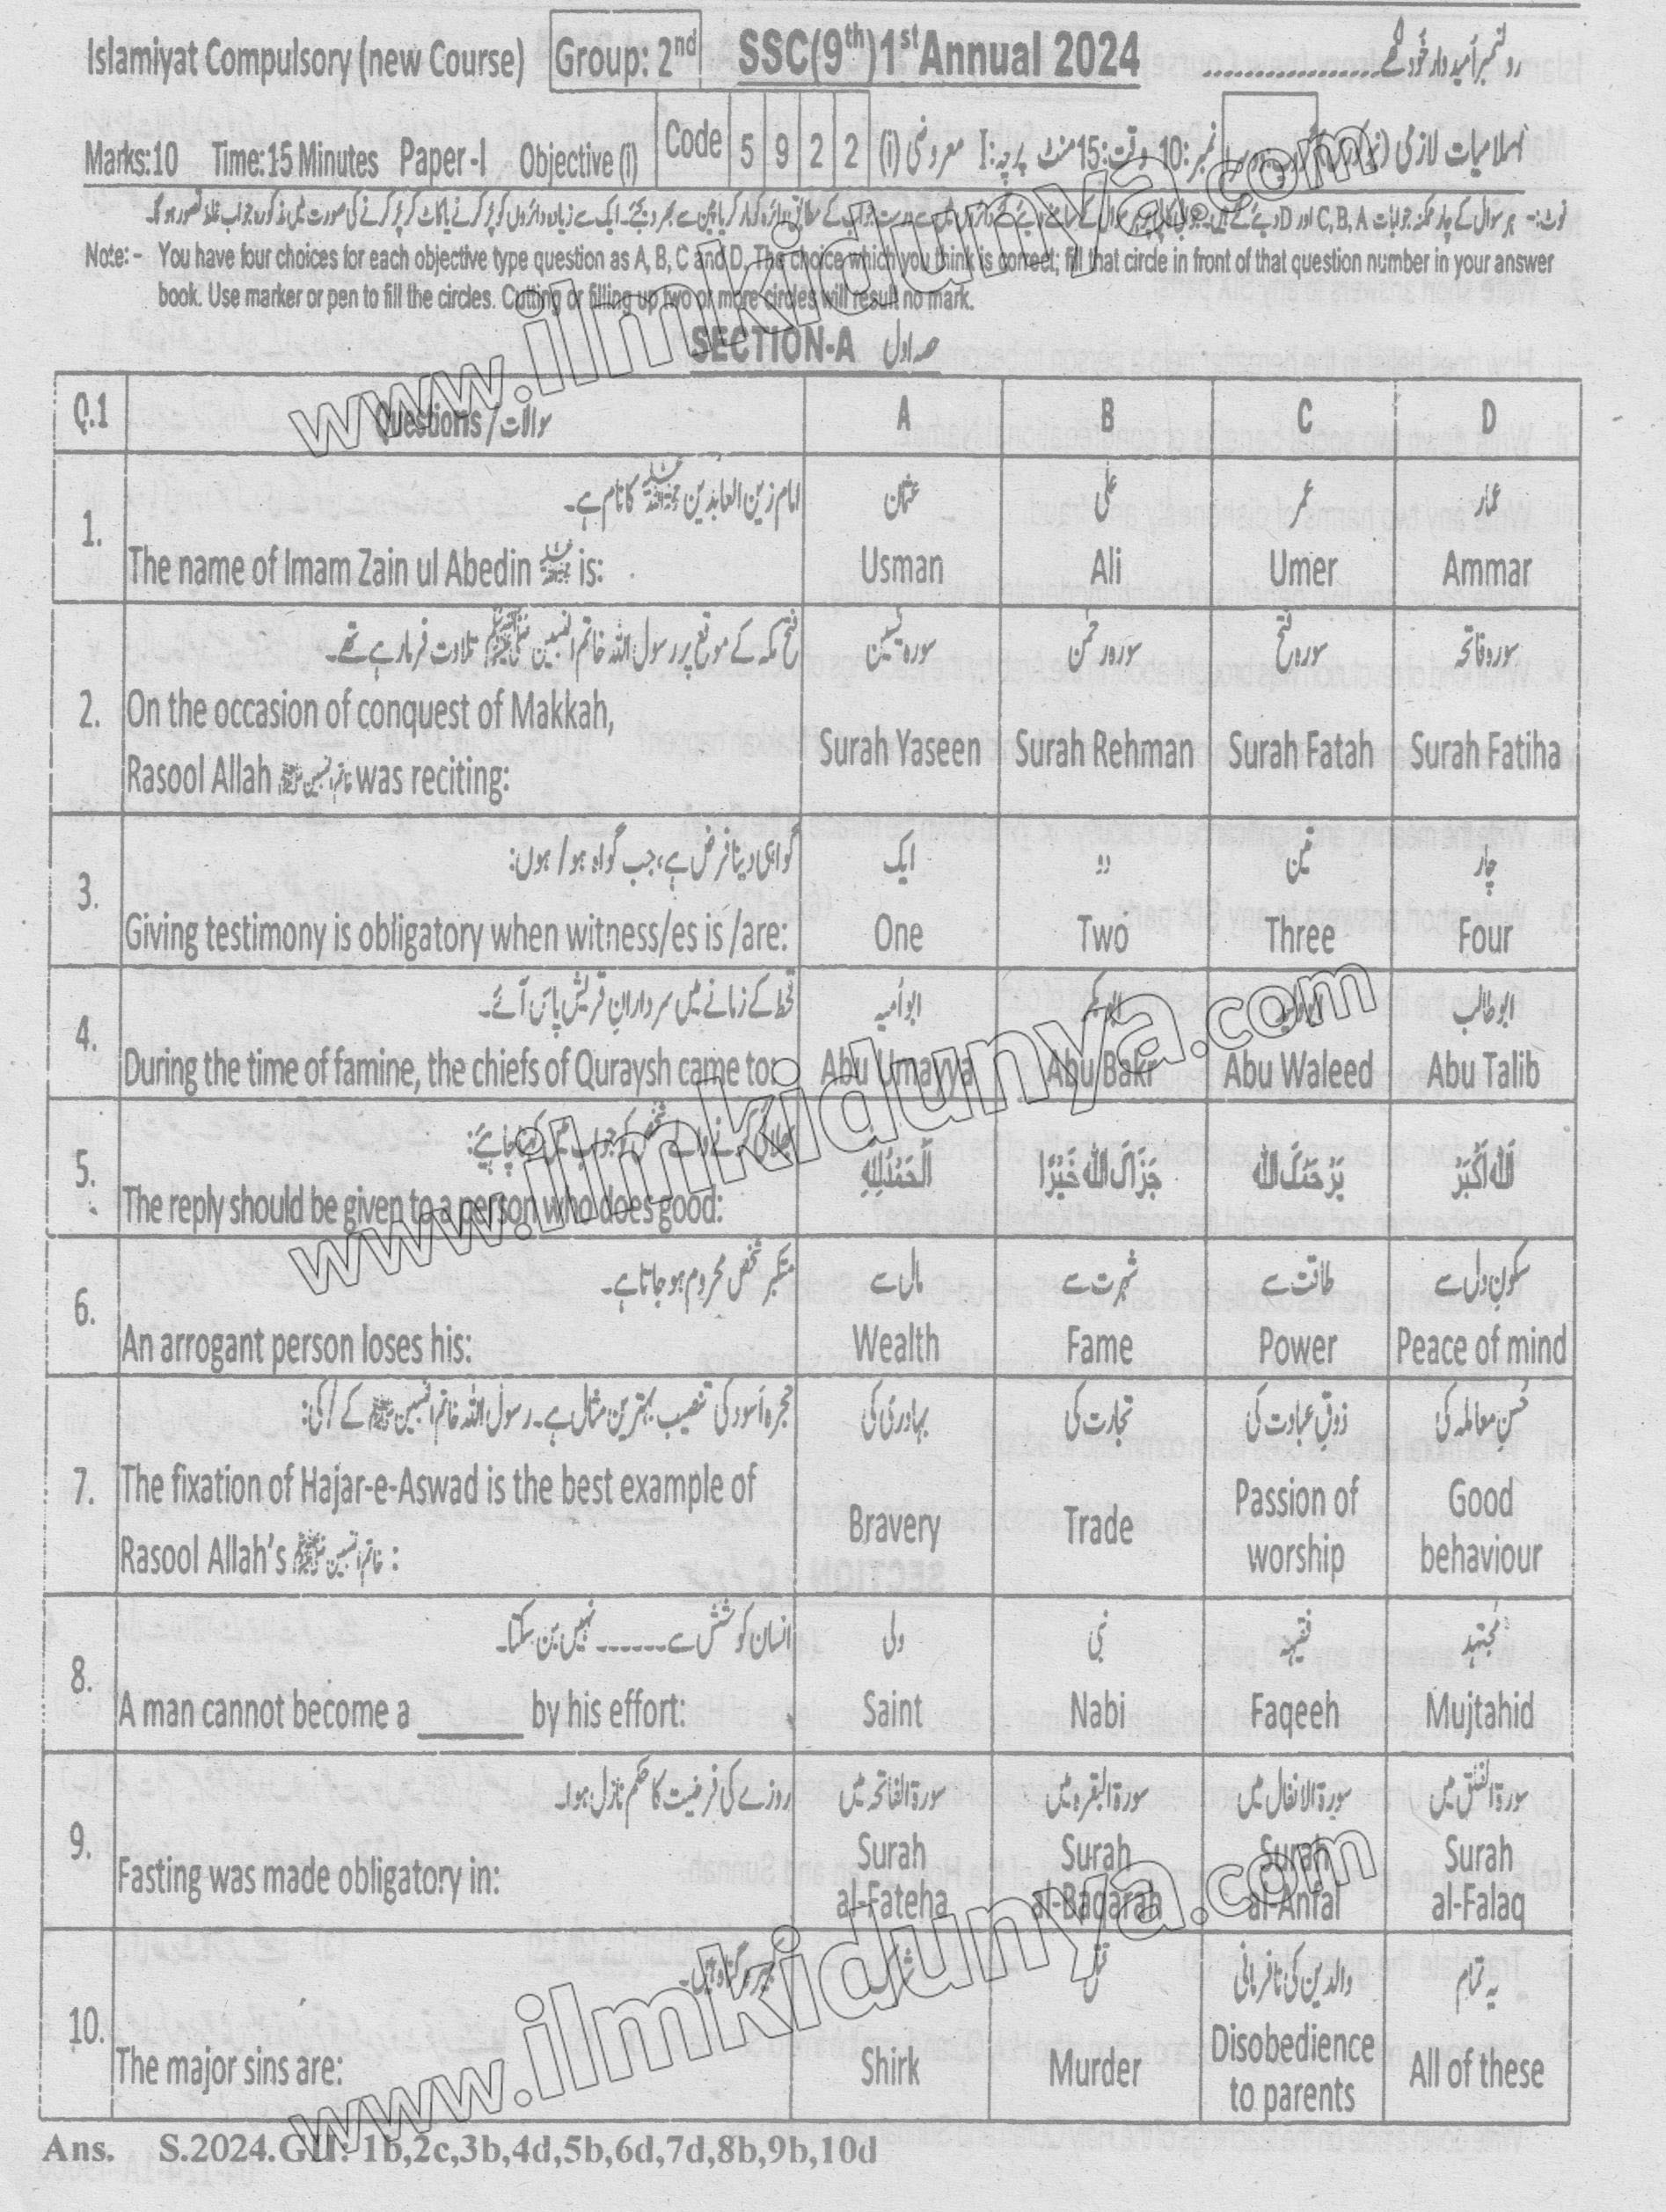 Islamiyat Compulsory (new Course) Group: 2nd SSC(9th)1st Annual 2024 رولنمبر امیدوار خود لکھے ..................
Marks:10 Time:15 Minutes Paper-I Objective (i) Code 5 9 2 2 (i) معروضی I:پرچہ منٹ 15:وقت 10:نمبر اسلامیات لازمی
نوٹ:- ہر سوال کے چار ممکنہ جوابات C,B,A اور D دیئے گئے ہیں۔
Note:- You have four choices for each objective type question as A, B, C and D. The choice which you think is correct; fill that circle in front of that question number in your answer
book. Use marker or pen to fill the circles. Cutting or filling up two or more circles will result no mark.
SECTION-A حصہ اول
Q.1 Questions / سوالات A B C D
1. امام زین العابدین کا نام ہے۔ عثمان علی عمر عمار
The name of Imam Zain ul Abedin is: Usman Ali Umer Ammar
فتح مکہ کے موقع پر رسول اللہ خاتم النبیین ﷺ تلاوت فرما رہے تھے۔ سورہ یٰسین سورہ رحمٰن سورہ فتح سورہ فاتحہ
2. On the occasion of conquest of Makkah,
Rasool Allah خاتم النبیین ﷺ was reciting: Surah Yaseen Surah Rehman Surah Fatah Surah Fatiha
3. گواہی دینا فرض ہے، جب گواہ ہو / ہوں: ایک دو تین چار
Giving testimony is obligatory when witness/es is /are: One Two Three Four
4. قحط کے زمانے میں سردارانِ قریش پاس آئے۔ ابو اُمیہ ابوبکر ابو طالب
During the time of famine, the chiefs of Quraysh came to: Abu Umayya Abu Bakr Abu Waleed Abu Talib
5. اَلْحَمْدُلِلّٰهِ جَزَاكَ اللّٰه خَيْرًا يَرْحَمُكَ اللّٰه اَللّٰهُ اَكْبَرُ
The reply should be given to a person who does good:
6. متکبر شخص محروم ہو جاتا ہے۔ مال سے شہرت سے طاقت سے سکونِ دل سے
An arrogant person loses his: Wealth Fame Power Peace of mind
حجرہ اسود کی تنصیب بہترین مثال ہے۔ رسول اللہ خاتم النبیین ﷺ کے / کی: بہادری کی تجارت کی ذوقِ عبادت کی حُسنِ معاملہ کی
7. The fixation of Hajar-e-Aswad is the best example of
Rasool Allah's خاتم النبیین ﷺ : Bravery Trade Passion of worship Good behaviour
8. انسان کوشش سے ------ نہیں بن سکتا۔ ولی نبی فقیہہ مُجتہد
A man cannot become a ______ by his effort: Saint Nabi Faqeeh Mujtahid
9. روزے کی فرضیت کا حکم نازل ہوا۔ سورۃ الفاتحہ میں سورۃ البقرہ میں سورۃ الانفال میں سورۃ الفلق میں
Fasting was made obligatory in: Surah al-Fateha Surah al-Baqarah Surah al-Anfal Surah al-Falaq
10. شرک قتل والدین کی نافرمانی یہ تمام
The major sins are: Shirk Murder Disobedience to parents All of these
Ans. S.2024.GII: 1b,2c,3b,4d,5b,6d,7d,8b,9b,10d
www.ilmkidunya.com
www.ilmkidunya.com
www.ilmkidunya.com